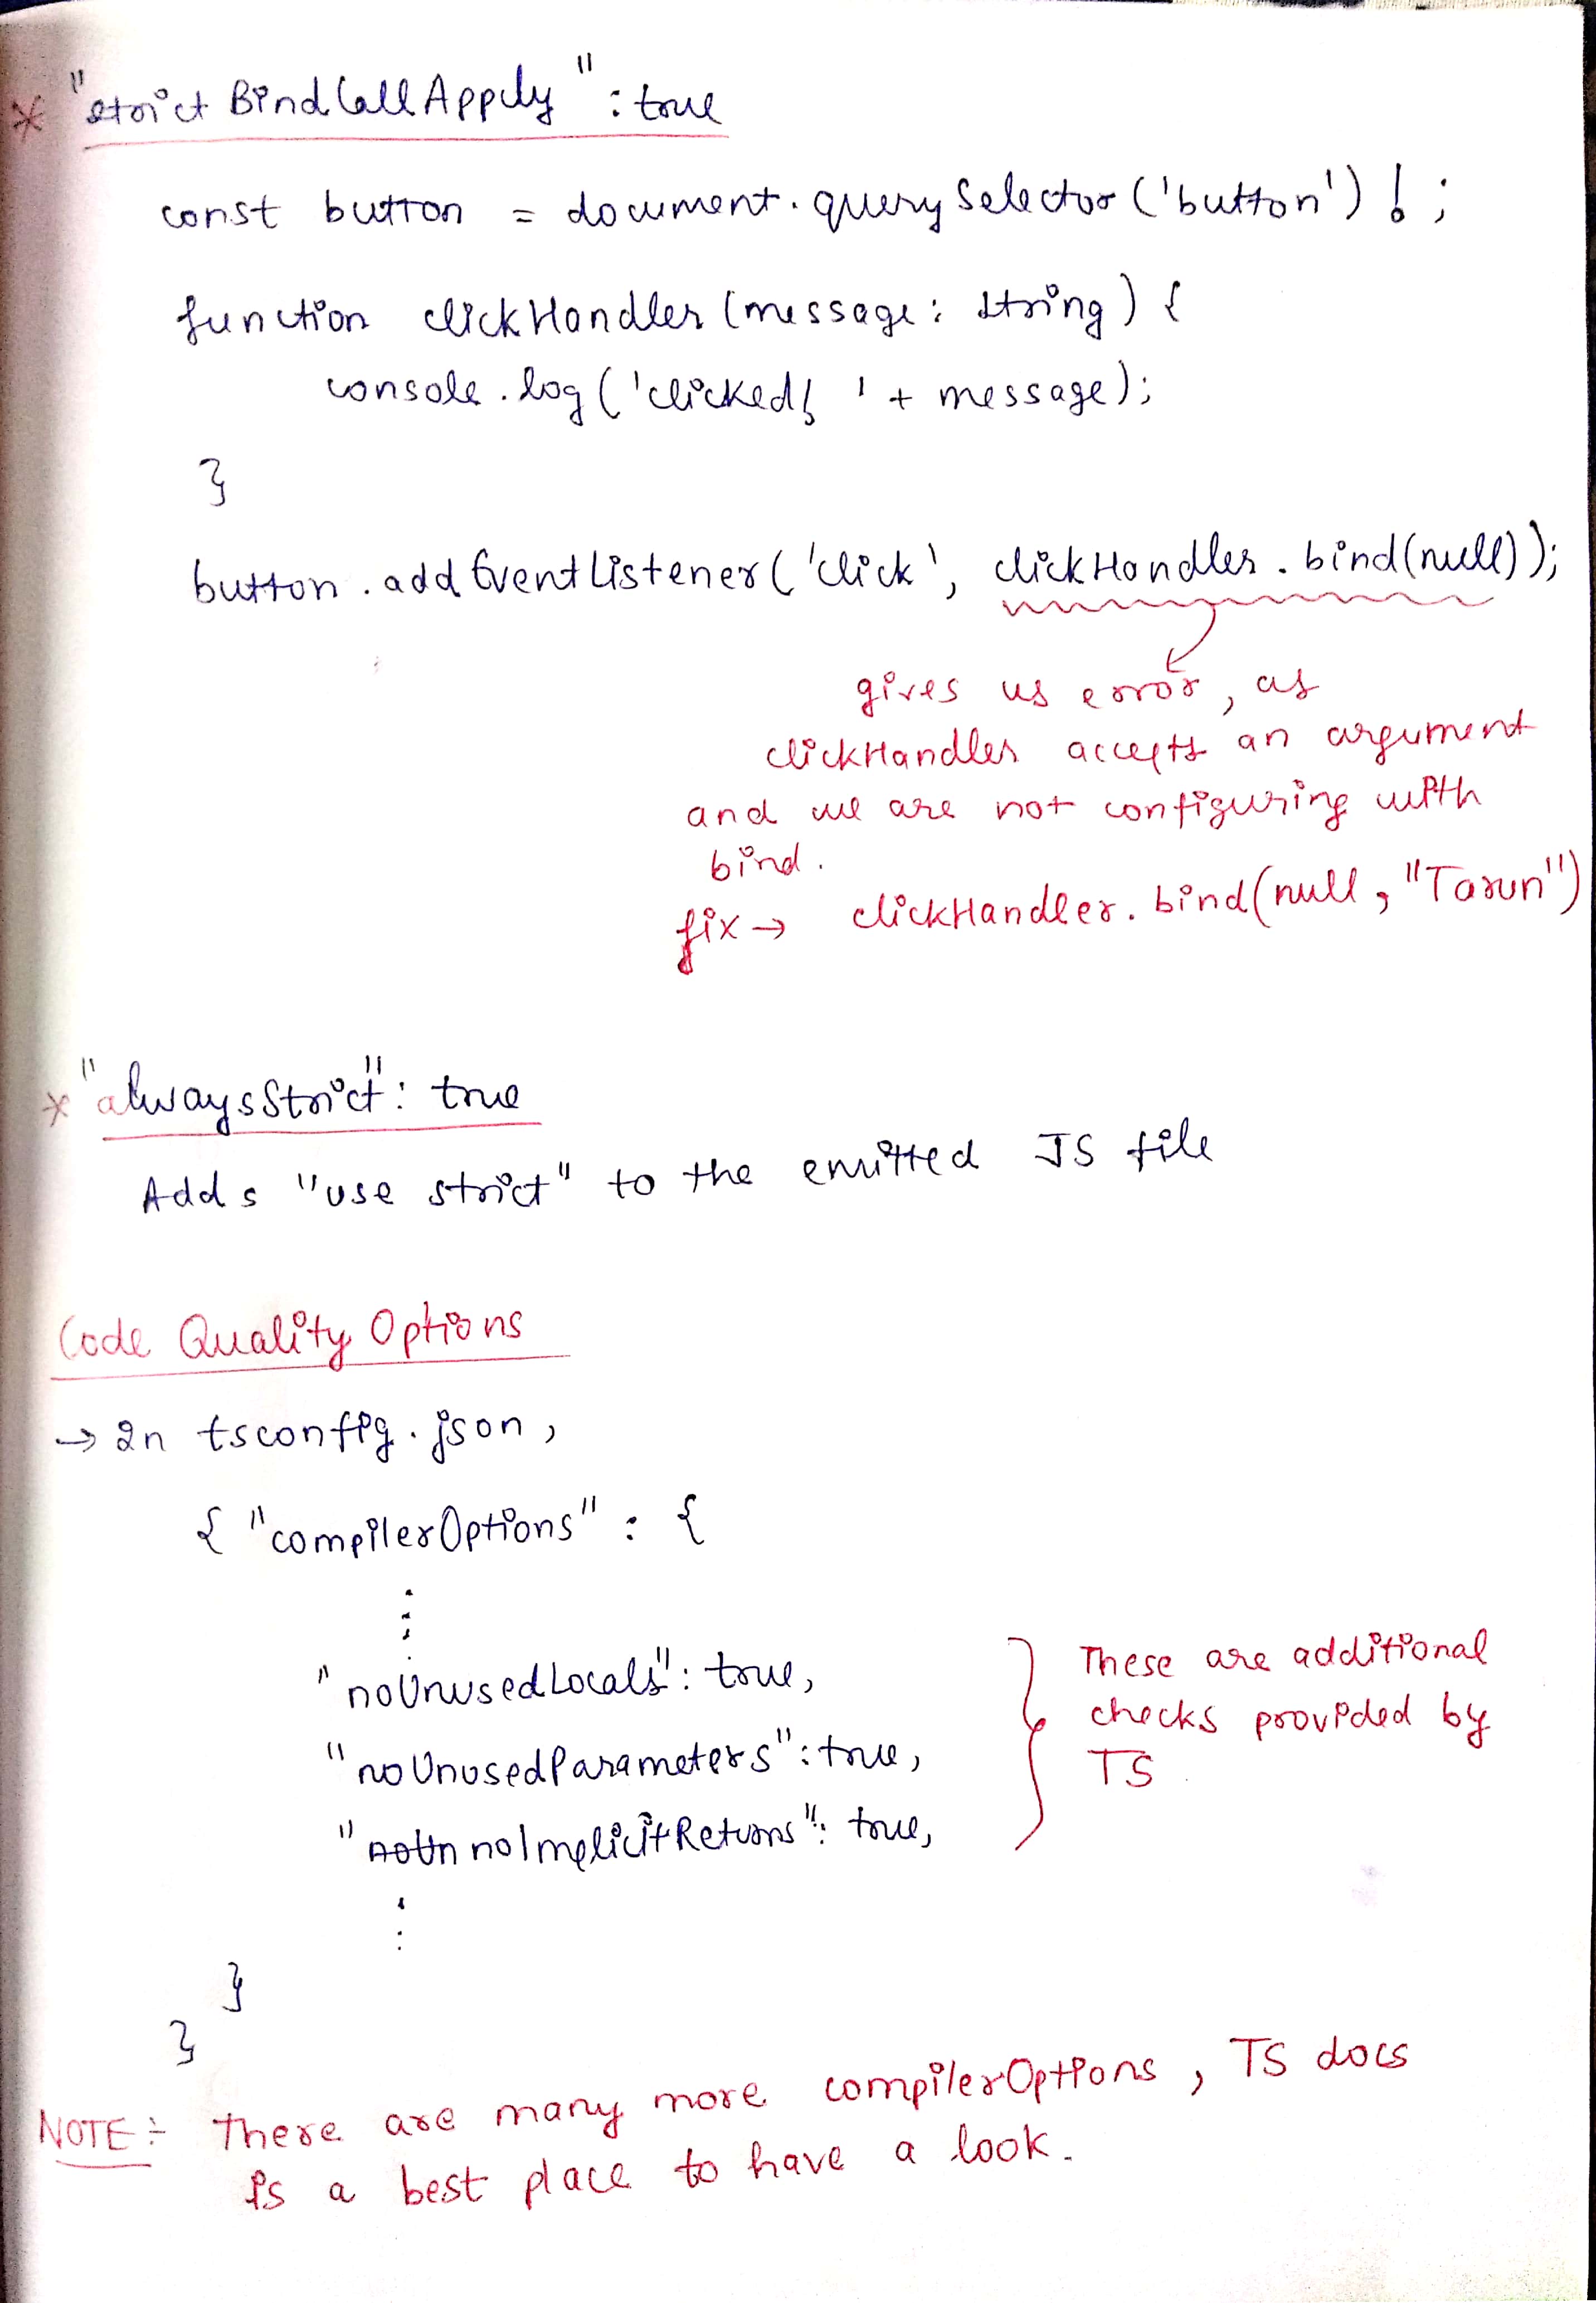 * "strictBindCallApply" : true
const button = document.querySelector('button')!;
function clickHandler (message: string) {
console.log('clicked! ' + message);
}
button.addEventListener('click', clickHandler.bind(null));
gives us error, as
clickHandler accepts an argument
and we are not configuring with
bind.
fix → clickHandler.bind(null, "Tarun")
* "alwaysStrict": true
Adds "use strict" to the emitted JS file
Code Quality Options
→ In tsconfig.json,
{ "compilerOptions" : {
"noUnusedLocals": true,
"noUnusedParameters": true,
"noUn noImplicitReturns": true,
These are additional
checks provided by
TS
}
}
NOTE:- There are many more compilerOptions, TS docs
is a best place to have a look.